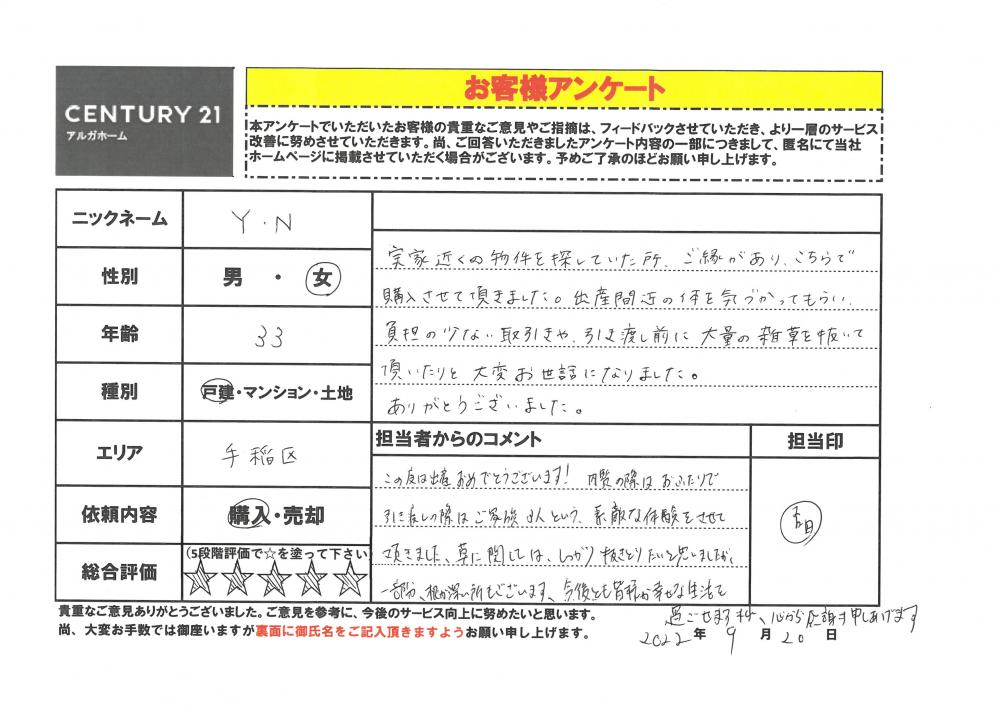 CENTURY 21
アルガホーム
お客様アンケート
本アンケートでいただいたお客様の貴重なご意見やご指摘は、フィードバックさせていただき、より一層のサービス
改善に努めさせていただきます。尚、ご回答いただきましたアンケート内容の一部につきまして、匿名にて当社
ホームページに掲載させていただく場合がございます。予めご了承のほどお願い申し上げます。
ニックネーム Y.N
性別 男 ・ 女
年齢 33
種別 戸建・マンション・土地
エリア 手稲区
依頼内容 購入・売却
総合評価 (5段階評価で☆を塗って下さい)
実家近くの物件を探していた所、ご縁があり、こちらで
購入させて頂きました。出産間近の体を気づかってもらい、
負担の少ない取引きや、引き渡し前に大量の雑草を抜いて
頂いたりと大変お世話になりました。
ありがとうございました。
担当者からのコメント
担当印
この度は出産おめでとうございます! 内覧の際はおふたりで
引き渡しの際はご家族3人という、素敵な体験をさせて
頂きました、草に関しては、しっかり抜きとりたいと思いましたが、
一部分、根が深い所もございます、今後とも皆様が幸せな生活を
過ごせます様、心から応謝申しあげます
貴重なご意見ありがとうございました。ご意見を参考に、今後のサービス向上に努めたいと思います。
尚、大変お手数では御座いますが裏面に御氏名をご記入頂きますようお願い申し上げます。
2022年 9月 20日